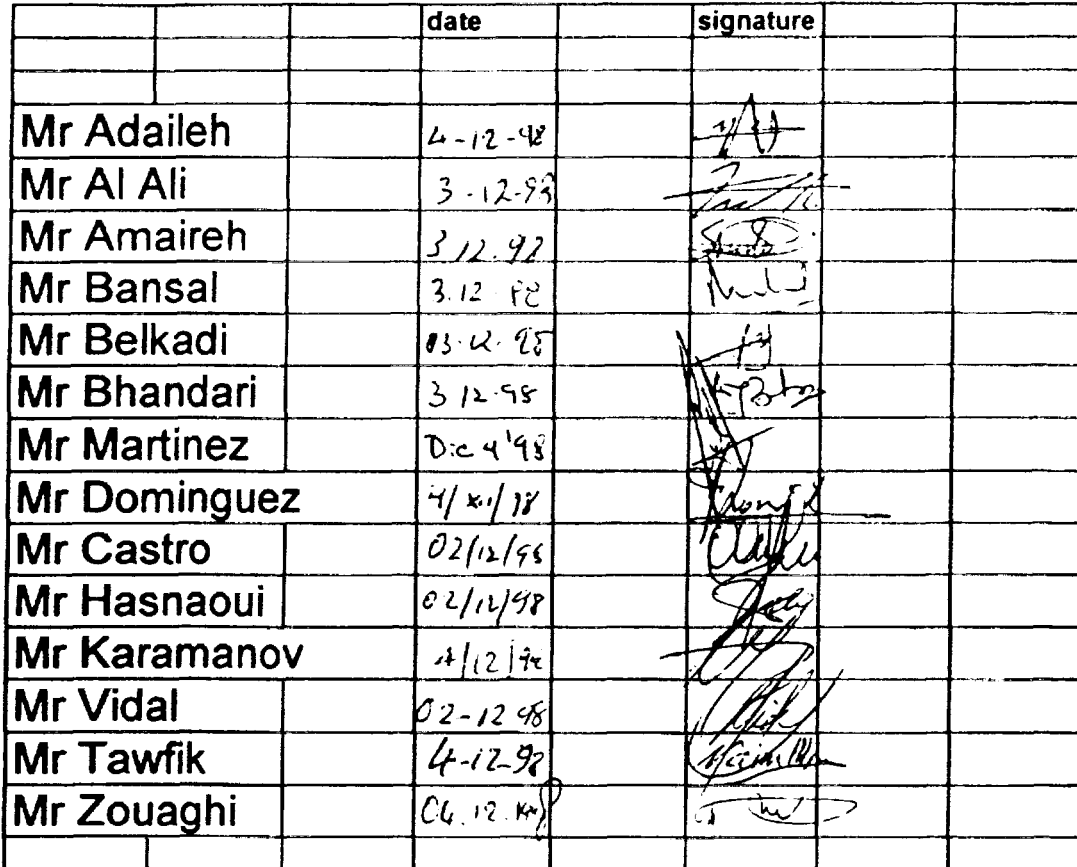 date signature
Mr Adaileh 4-12-98
Mr Al Ali 3-12-98
Mr Amaireh 3.12.98
Mr Bansal 3.12.98
Mr Belkadi 03.12.98
Mr Bhandari 3.12.98
Mr Martinez Dic 4'98
Mr Dominguez 4/XII/98
Mr Castro 02/12/98
Mr Hasnaoui 02/12/98
Mr Karamanov 4/12/98
Mr Vidal 02-12 98
Mr Tawfik 4-12-98
Mr Zouaghi 04.12.